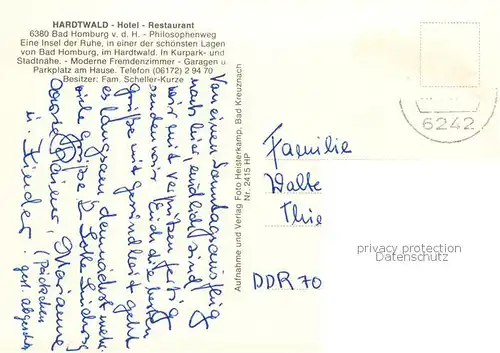 HARDTWALD - Hotel - Restaurant
6380 Bad Homburg v. d. H. - Philosophenweg
Eine Insel der Ruhe, in einer der schönsten Lagen
von Bad Homburg, im Hardtwald. In Kurpark- und
Stadtnähe. - Moderne Fremdenzimmer - Garagen u.
Parkplatz am Hause. Telefon (06172) 2 94 70
Besitzer: Fam. Scheller-Kurze
Von einem Sonntagsausflug
nach hier, endlich sind
wir mit verputzen fertig
senden wir Euch die besten
Grüße mit Gesundheit geht
es langsam, demnächst mehr.
viele Grüße
Rainer, Marianne
u. Kinder. (Päckchen
gest. abgeschickt
Aufnahme und Verlag Foto Heisterkamp, Bad Kreuznach
Nr. 2415 HP
6242
Familie
Walte
Thie
DDR 70
privacy protection
Datenschutz